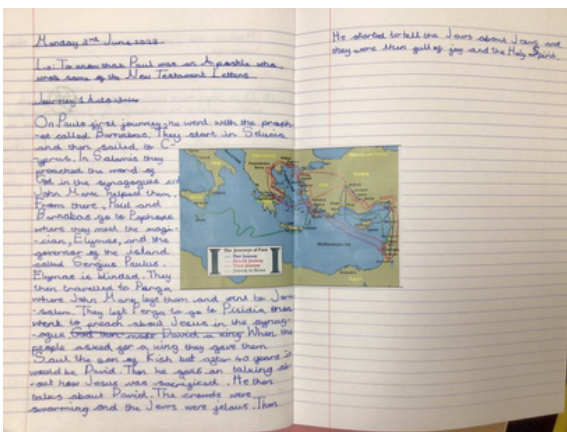 Monday 3rd June 2023
L.: To know that Paul was an Apostle who
wrote some of the New Testament Letters
Journey 1
On Pauls first journey, he went with the proph-
-et called Barnabas. They start in Selucia
and then sailed to C-
yprus. In Salamis they
preached the word of
God in the synagogues and
John Mark helped them.
From there, Paul and
Barnabas go to Paphose
where they meet the magi-
-cian, Elymas, and the
governor of the island
called Sergius Paulus.
Elymas is blinded. They
then travelled to Perga
where John Mark left them and went to Jeru-
-salem. They left Perga to go to Pisidia then
went to preach about Jesus in the synag-
-ogue God then made David a king When the
people asked for a king they gave them
Saul the son of Kish but after 40 years it
would be David. Then he goes on talking ab-
-out how Jesus was sacrificed. He then
talks about David. The crowds were
swarming and the Jews were jelous. Then
He started to tell the Jews about Jesus and
they were then full of joy and the Holy Spirit.
The Journeys of Paul
First Journey
Second Journey
Third Journey
Journey to Rome
Mediterranean Sea